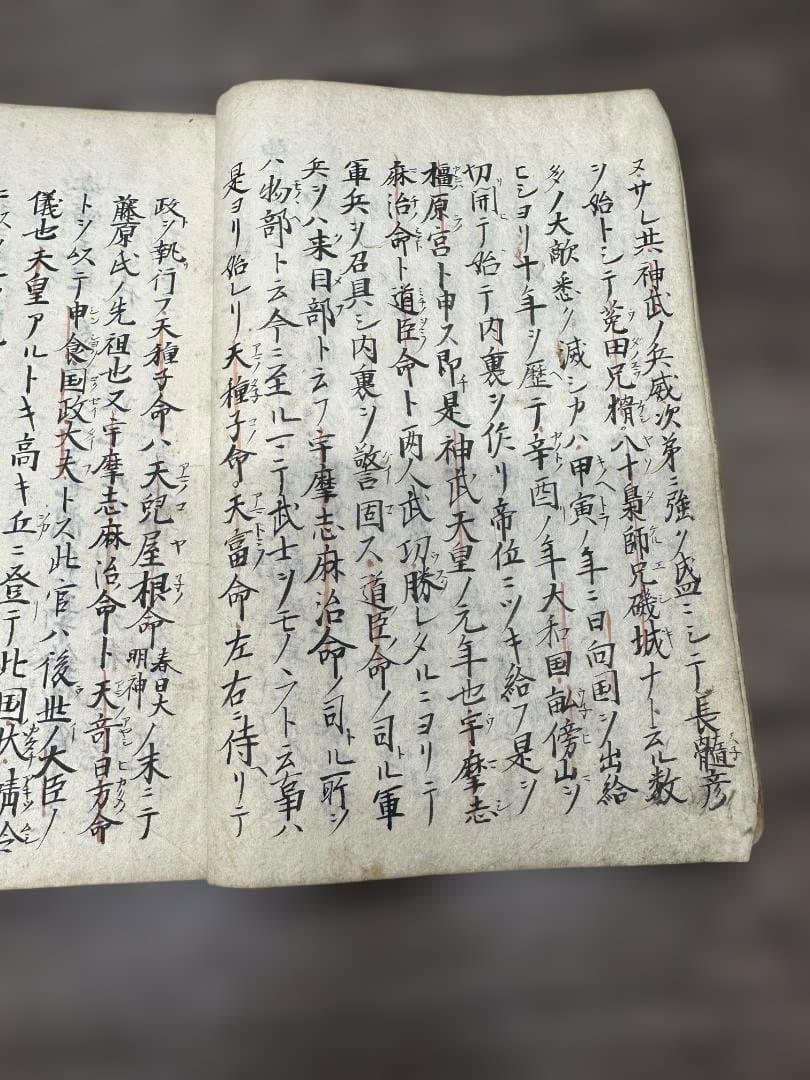 ヌサレ共神武ノ兵威次第ニ強ク盛ニシテ長髓彦
シ始トシテ菟田兄猾八十梟師兄磯城ナト云ル数
多ノ大敵悉ク滅シカハ甲寅ノ年ニ日向国ヲ出給
ヒショリ十年ヲ歴テ辛酉ノ年大和国畝傍山ヲ
切開テ始テ内裏ヲ作リ帝位ニツキ給フ是ヲ
橿原宮ト申ス即是神武天皇ノ元年也宇摩志
麻治命ト道臣命ト両人武功勝レタルニヨリテ
軍兵ヲ召具シ内裏ヲ警固ス道臣命ノ司ル軍
兵ヲハ来目部ト云フ宇摩志麻治命ノ司ル所ヲ
ハ物部ト云今ニ至ルマテ武士ヲモノヽフト云事ハ
是ヨリ始レリ天種子命天富命左右ニ侍リテ
政ヲ執行フ天種子命ハ天兒屋根命春日大明神ノ末ニテ
藤原氏ノ先祖也又宇摩志麻治命ト天奇日方命
トヲ以テ申食国政大夫トス此官ハ後世ノ大臣ノ
儀也天皇アルトキ高キ丘ニ登テ此国状蜻蛉